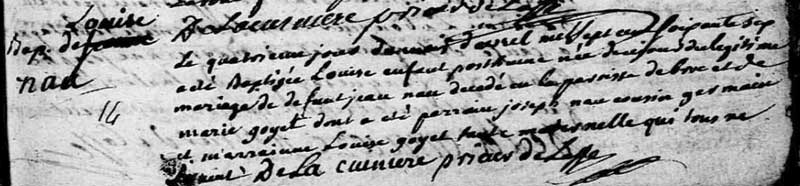 Louise
Bap. de jeanne
nau
14
De La cuiniere prieur de Lesse
Le quatrieme jour du mois d'avril mil sept cent soixante sep
a été Baptisée Louise enfant posthume née de du legitime
mariage de defunt jean nau decedé en la paroisse de et de
marie goyet dont a été parrain joseph nau cousin germain
et marraine Louise goyet tante maternelle qui tous ne
De La cuiniere prieur de Lesse